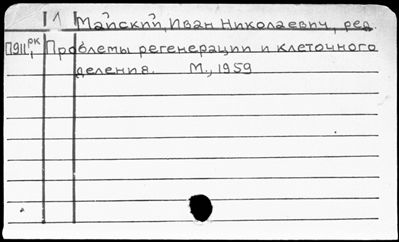 1 Майский, Иван Николаевич, ред.
П911, рк Проблемы регенерации и клеточного
деления. М., 1959